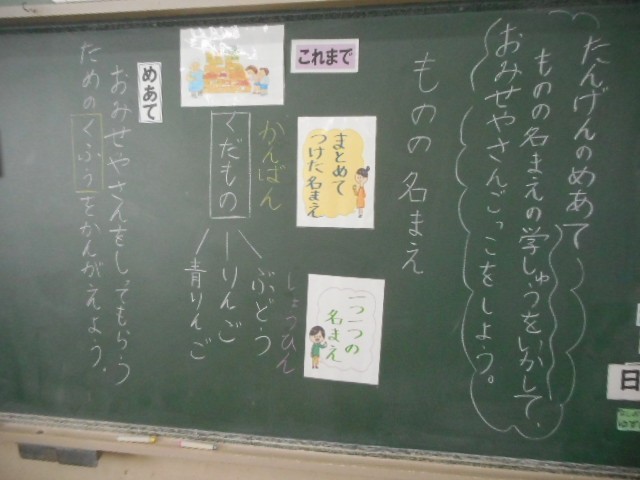 たんげんのめあて
ものの名まえの学しゅうをいかして、
おみせやさんごっこをしよう。
ものの名まえ
これまで
まとめて
つけた名まえ
一つ一つの
名まえ
かんばん
くだもの
しょうひん
ぶどう
りんご
青りんご
めあて
おみせやさんをしってもらう
ためのくふうをかんがえよう。
日